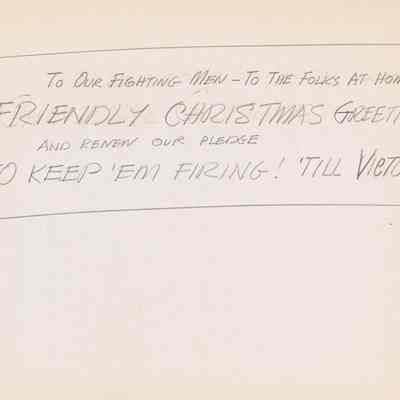 TO OUR FIGHTING MEN - TO THE FOLKS AT HOM
FRIENDLY CHRISTMAS GREETI
AND RENEW OUR PLEDGE
O KEEP 'EM FIRING! 'TILL VICTO